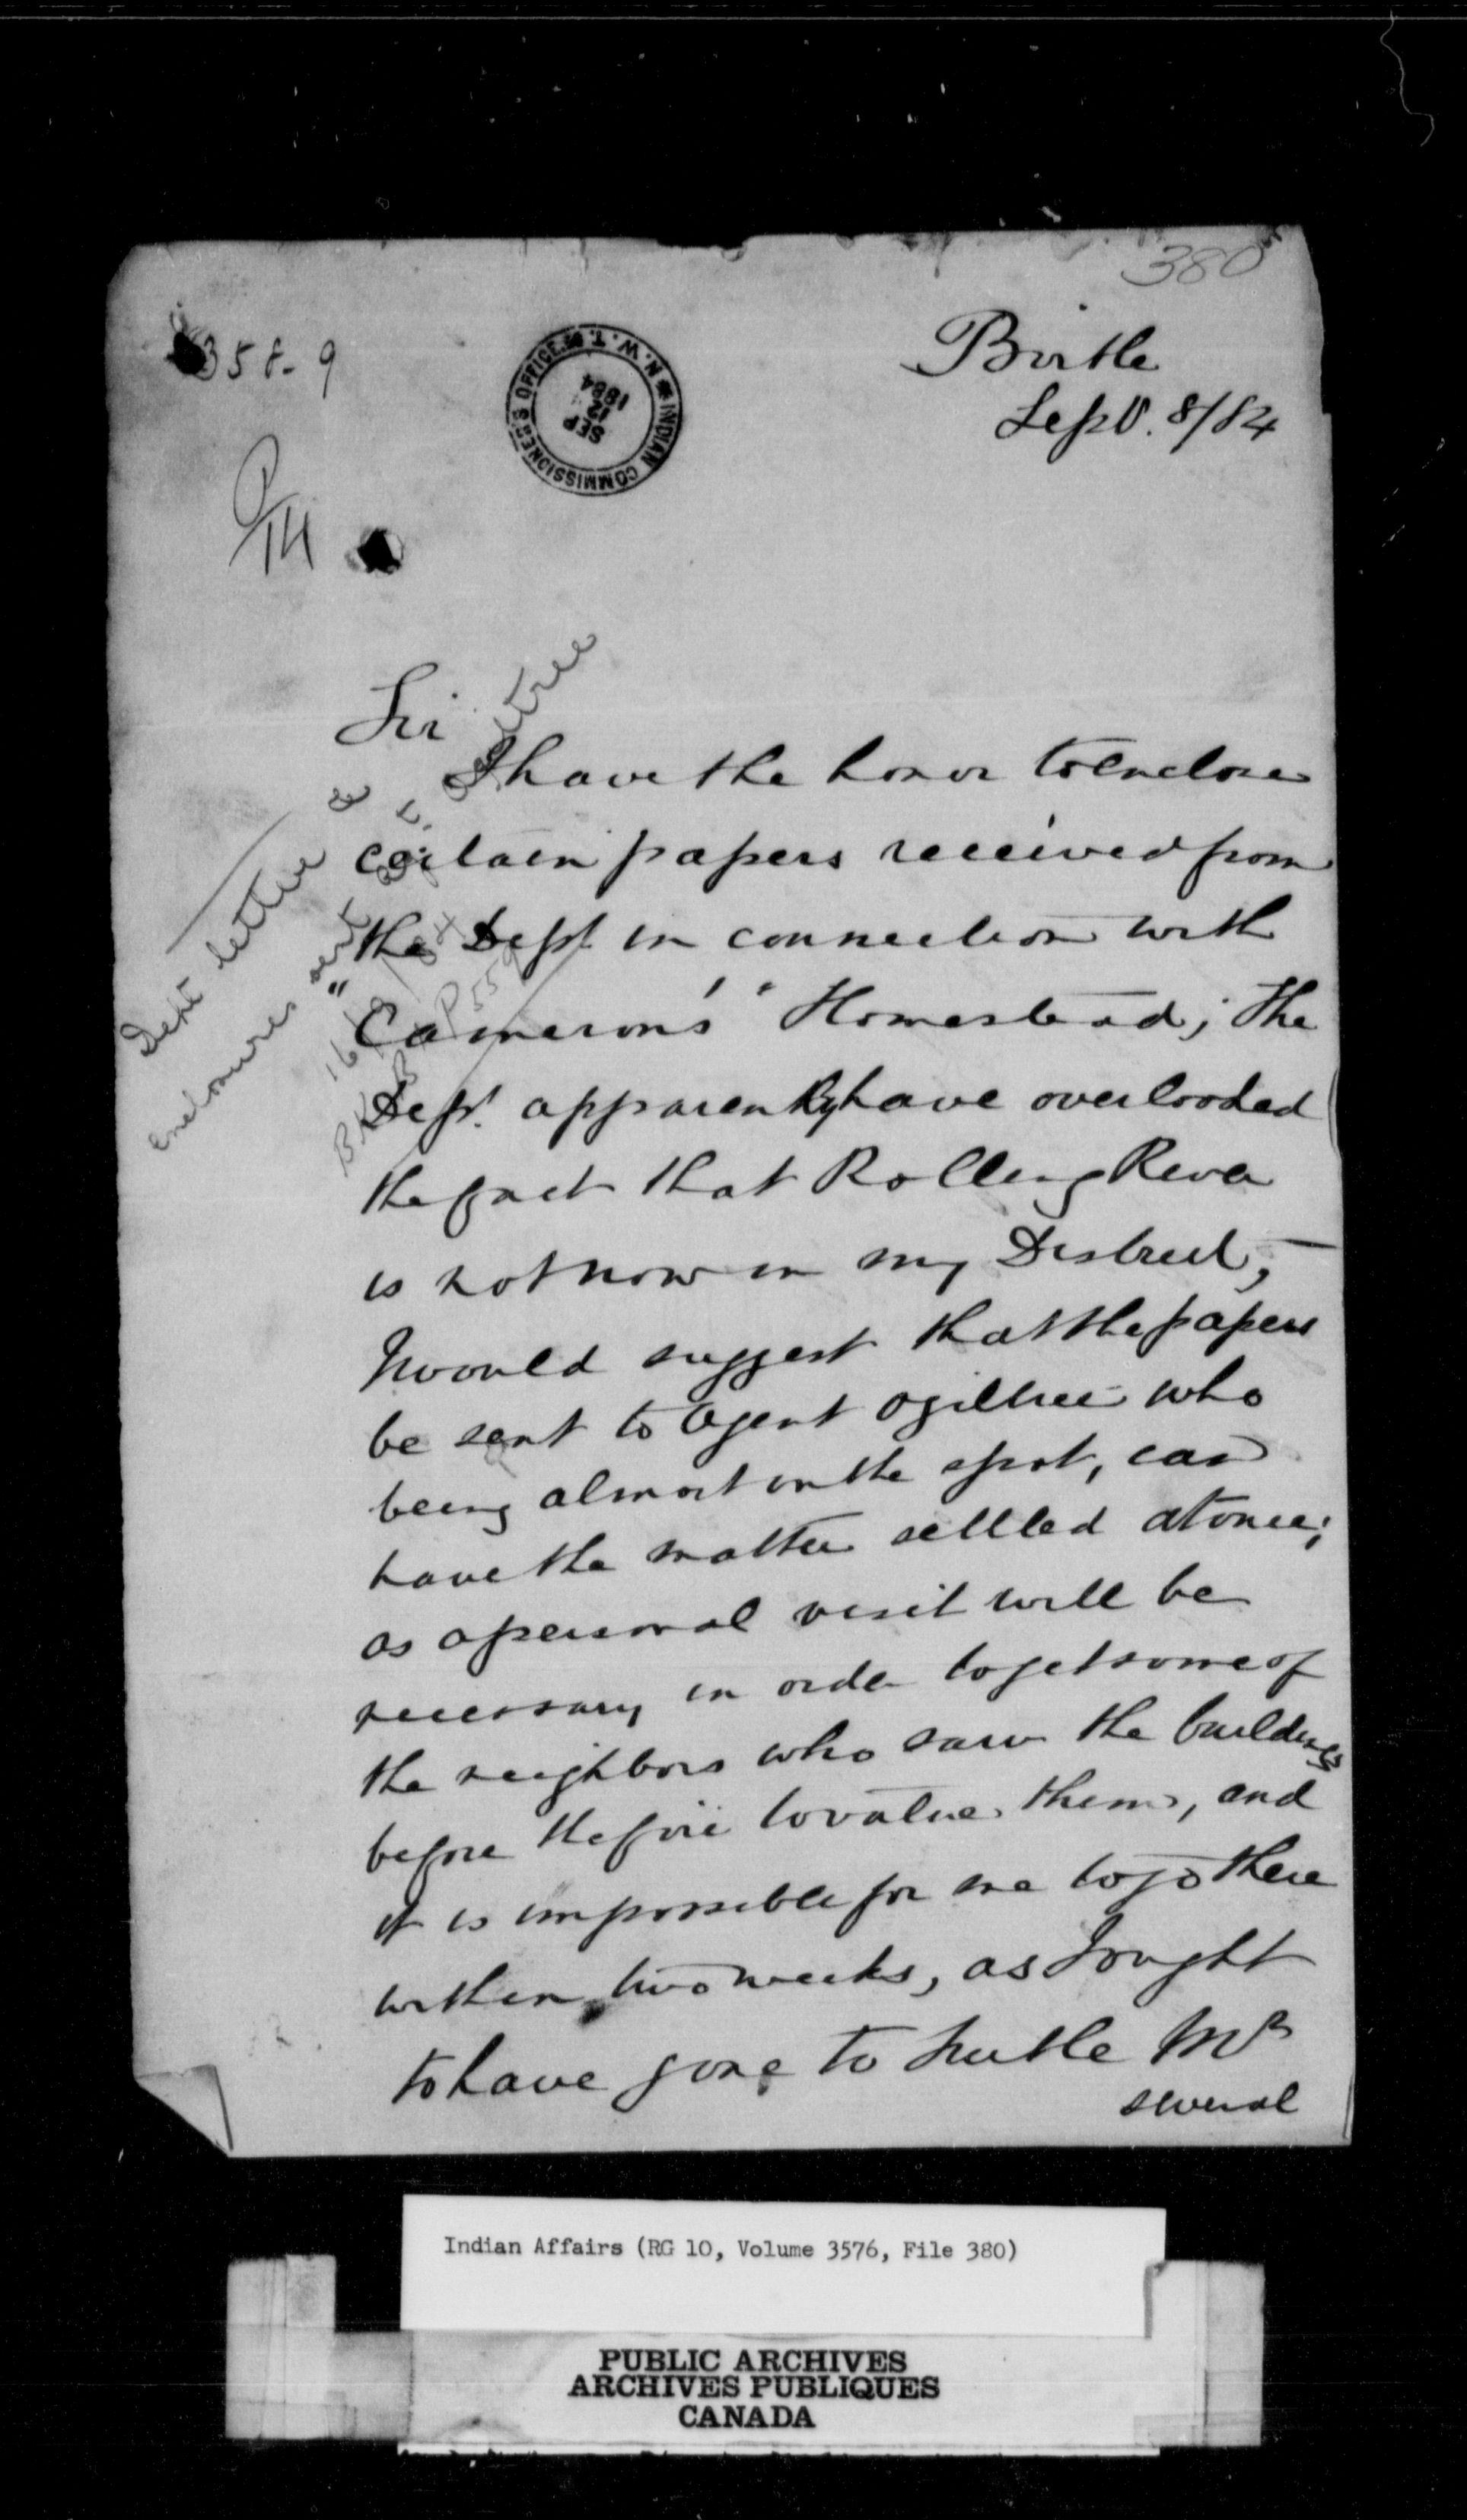 380
358-9
Birtle
Sept. 8/84
INDIAN COMMISSIONER'S OFFICE N.W.T.
SEP
12
1884
P/14
Dept letter &
enclosures sent agt. ogletree
16/9/84
BK B P 559
Sir
I have the honor to enclose
certain papers received from
the Dept in connection with
"Cameron's" Homestead; The
Dept. apparently have overlooked
the fact that Rolling River
is not now in my District,
I would suggest that the papers
be sent to Agent Ogiltree who
being almost on the spot, can
have the matter settled at once;
as a personal visit will be
necessary in order to get some of
the neighbors who saw the buildings
before the fire to value them, and
it is impossible for me to go there
within two weeks, as I ought
to have gone to
several
Indian Affairs (RG 10, Volume 3576, File 380)
PUBLIC ARCHIVES
ARCHIVES PUBLIQUES
CANADA